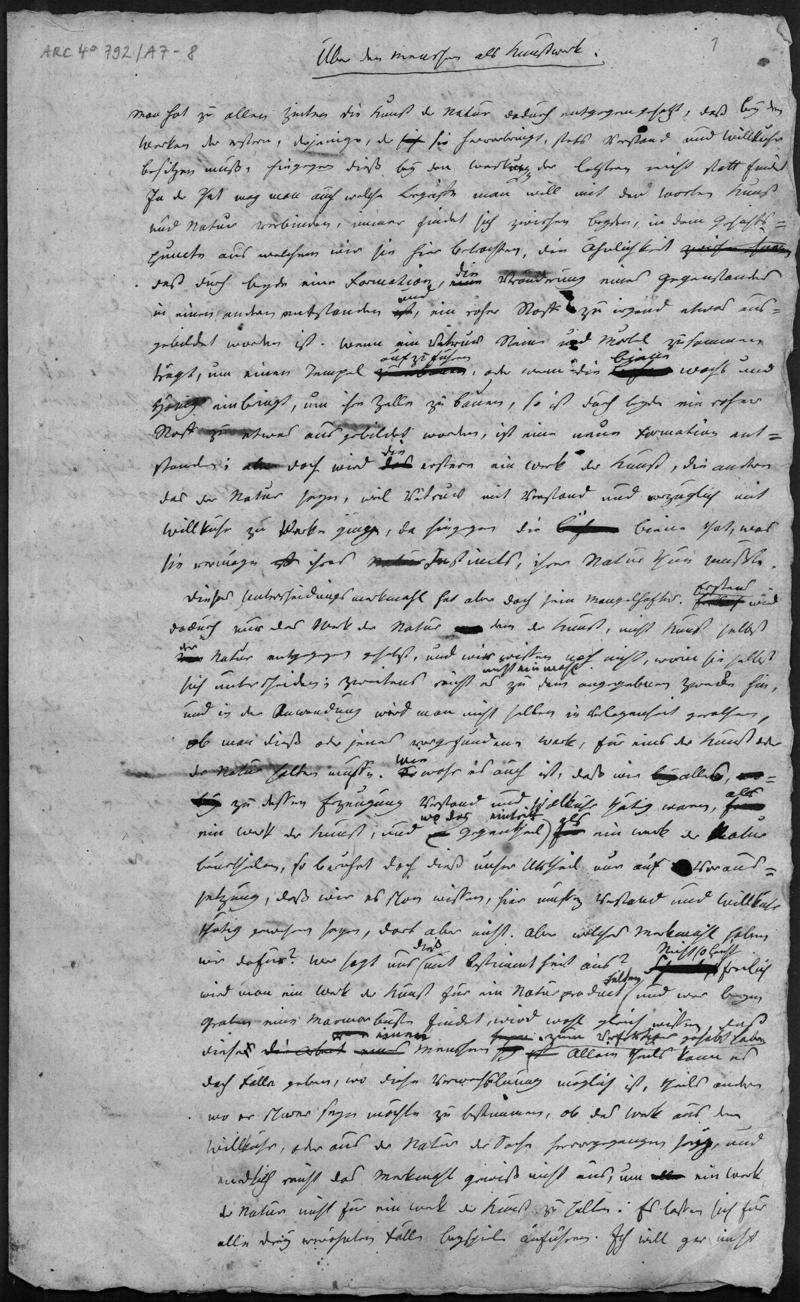 ARC 4° 792/A7-8
1
Über den Menschen als Kunstwerk.
Man hat zu allen Zeiten die Kunst der Natur dadurch entgegengesetzt, daß bey den
Werken der erstern, derjenige, der sie hervorbringt, stets Verstand und Willkühr
besitzen muß, hingegen dieß bey den Werken der letztern nicht statt findet
In der That mag man auch welche Begriffe man will mit den Worten Kunst
und Natur verbinden, immer findet sich zwischen beyden, in dem Gesichts=
puncte aus welchem wir sie hier betrachten, die Ähnlichkeit
daß durch beyde eine Formation, die Veränderung eines Gegenstandes
in einen andern entstanden und, ein roher Stoff zu irgend etwas aus=
gebildet worden ist. Wenn ein Vitruv Steine und Mörtel zusammen
trägt, um einen Tempel aufzuführen, oder wenn die Biene Wachs und
Honig einbringt, um ihre Zelle zu bauen, so ist doch beyde ein roher
Stoff zu etwas ausgebildet worden, ist eine neue Formation ent=
standen; doch wird die erstere ein Werk der Kunst, die andere
das der Natur seyn, weil Vitruv mit Verstand und vorzüglich mit
Willkühr zu Werke ging, da hingegen die Biene that, was
sie vermöge ihres Instincts, ihrer Natur thun mußte.
Dieses Unterscheidungsmerkmahl hat aber doch sein Mangelhaftes. Erstens wird
dadurch nur das Werk der Natur dem der Kunst, nicht Kunst selbst
der Natur entgegen gesetzt, und wir wissen noch nicht, worin sie selbst
sich unterscheiden; zweitens reicht es nicht einmahl zu dem angegebenen Zwecke hin,
und in der Anwendung wird man nicht selten in Verlegenheit gerathen,
ob man dieß oder jenes vorgefundene Werk, für eins der Kunst oder
der Natur halten müsse. Wie wahr es auch ist, daß wir alles, wo=
zu dessen Erzeugung Verstand und Willkühr thätig waren, als
ein Werk der Kunst, und wo das Gegentheil eintritt als ein Werk der Natur
beurtheilen, so beruhet doch dieß unser Urtheil nur auf Voraus=
setzung, daß wir es schon wissen, hier müssen Verstand und Willkühr
thätig gewesen seyn, dort aber nicht. Aber welches Merkmahl haben
wir dafür? Wer sagt uns dieß mit Bestimmtheit aus? Nicht so leicht freilich
wird man ein Werk der Kunst für ein Naturproduct halten, und wer beym
Graben eine Marmorbüste findet, wird wohl gleich wissen, daß
dieses einen Menschen zum Verfertiger gehabt habe. Allein theils kann es
doch Fälle geben, wo diese Verwechslung möglich ist, theils andere
wo es schwer seyn möchte zu bestimmen, ob das Werk aus dem
Willkühr, oder aus der Natur der Sache hervorgegangen sey, und
endlich reicht das Merkmahl gewiß nicht aus, um ein Werk
der Natur nicht für ein Werk der Kunst zu halten: Es lassen sich für
alle drey erwähnten Fälle Beyspiele anführen. Ich will gar nicht